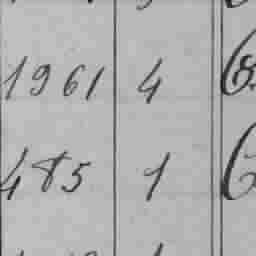 1961 4
485 1